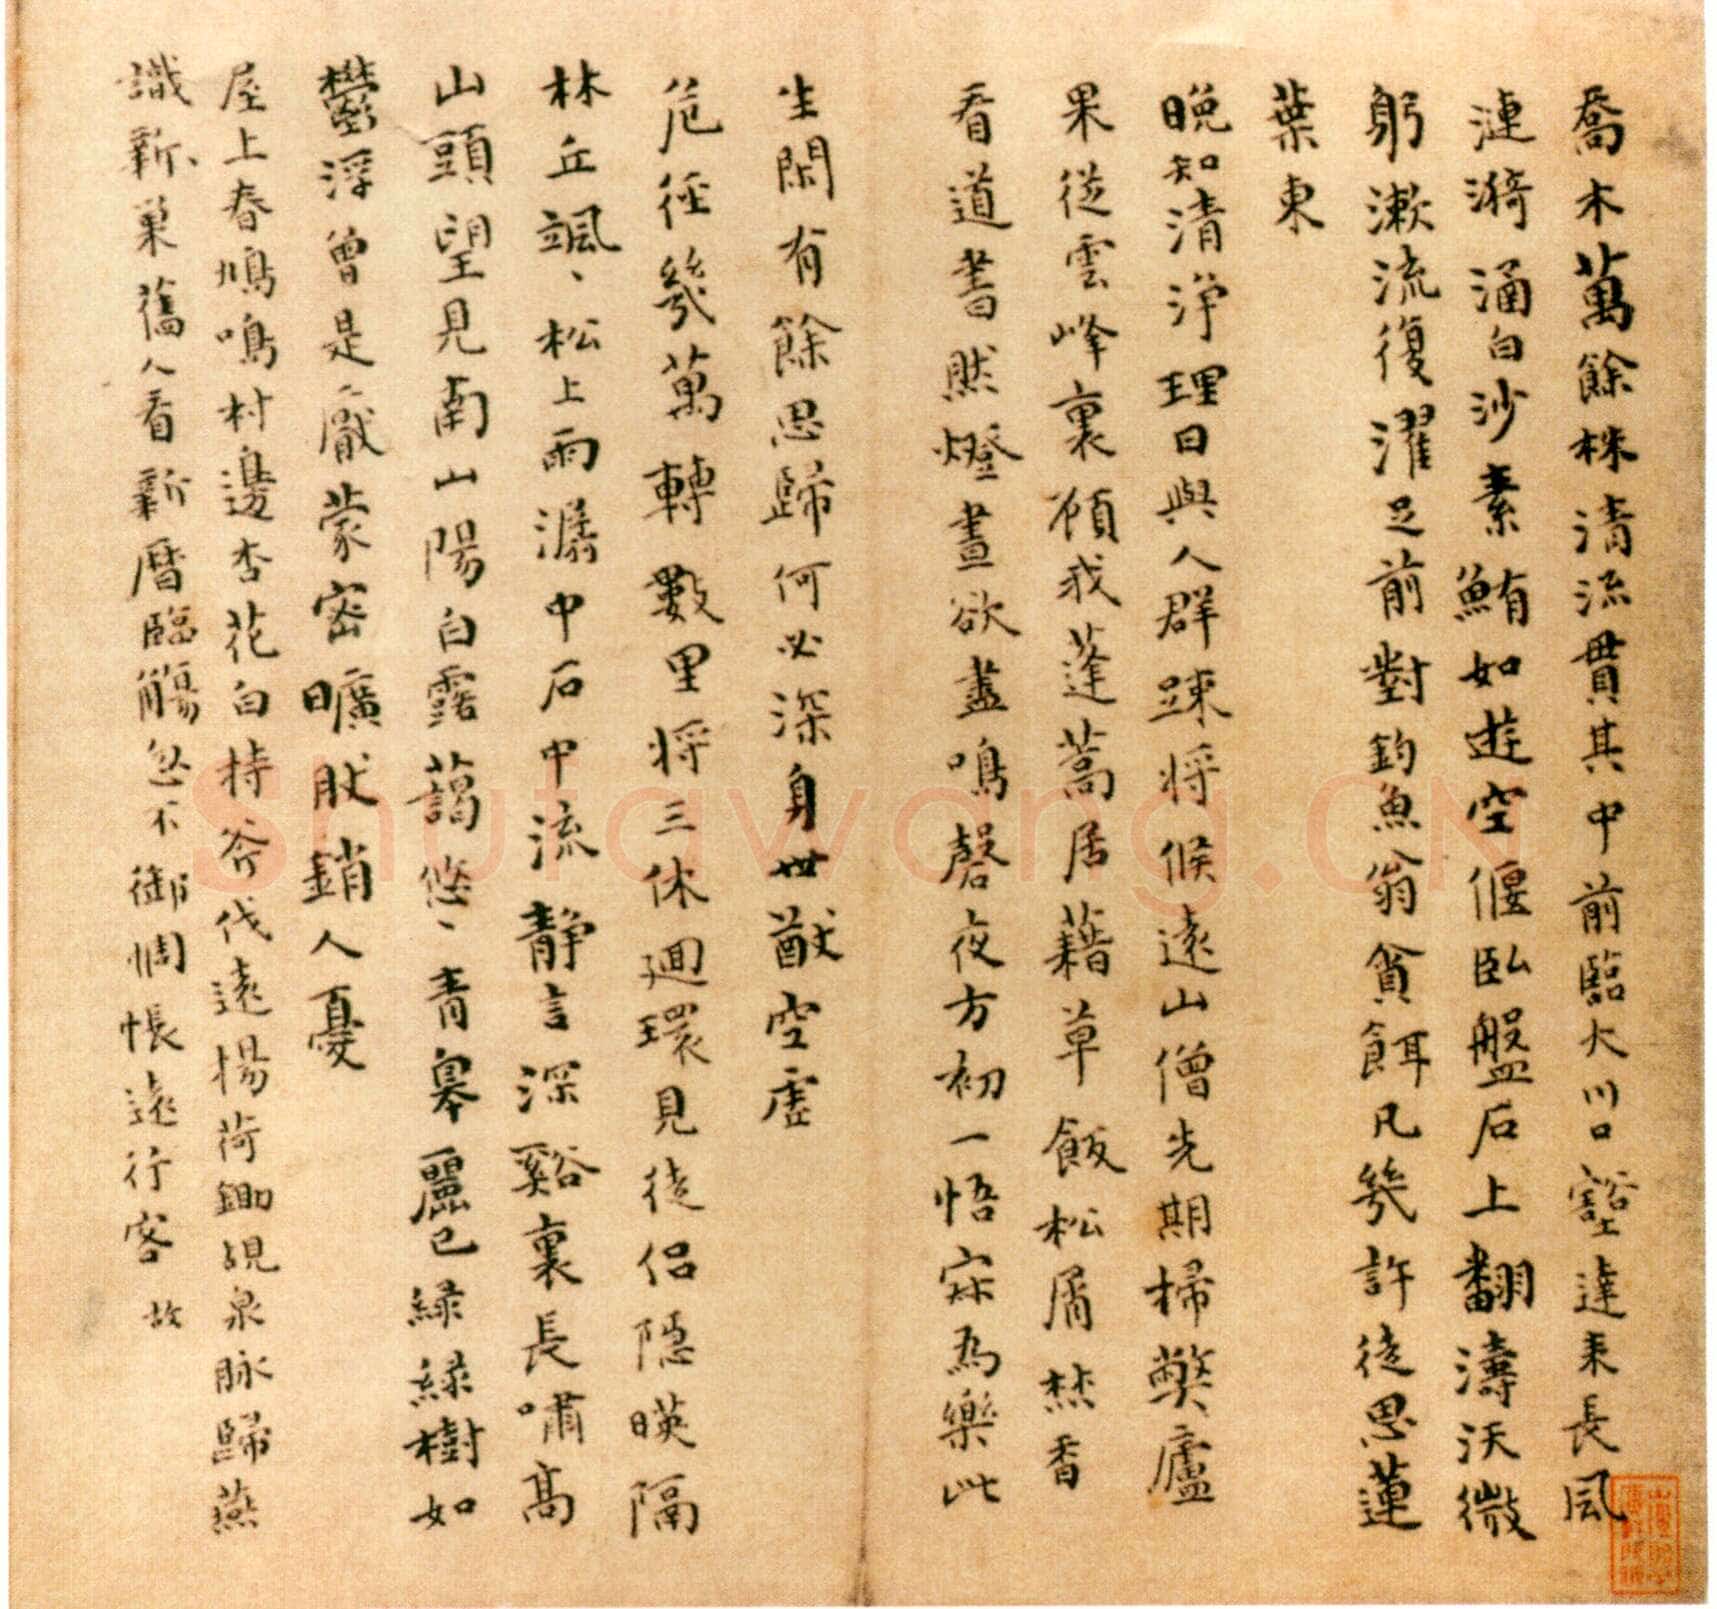 喬木萬餘株清流貫其中前臨大川口豁達來長風
漣漪涵白沙素鮪如遊空偃臥盤石上翻濤沃微
躬漱流復濯足前對釣魚翁貪餌凡幾許徒思蓮
葉東
晚知清淨理日與人群踈將候遠山僧先期掃弊廬
果從雲峰裏顧我蓬蒿居藉草飯松屑焚香
看道書然燈晝欲盡鳴磬夜方初一悟寂為樂此
生閑有餘思歸何必深身世猷空虛
危徑幾萬轉數里將三休迴環見徒侶隱暎隔
林丘颯、松上雨潺中石中流靜言深谿裏長嘯高
山頭望見南山陽白露藹悠、青皋麗已綠綠樹如
鬱浮曾是厭蒙密曠狀銷人憂
屋上春鳩鳴村邊杏花白持斧伐遠揚荷鋤覘泉脉歸燕
識新、巢舊人看新曆臨觴忽不御惆悵遠行客 故
Shufawang.CN